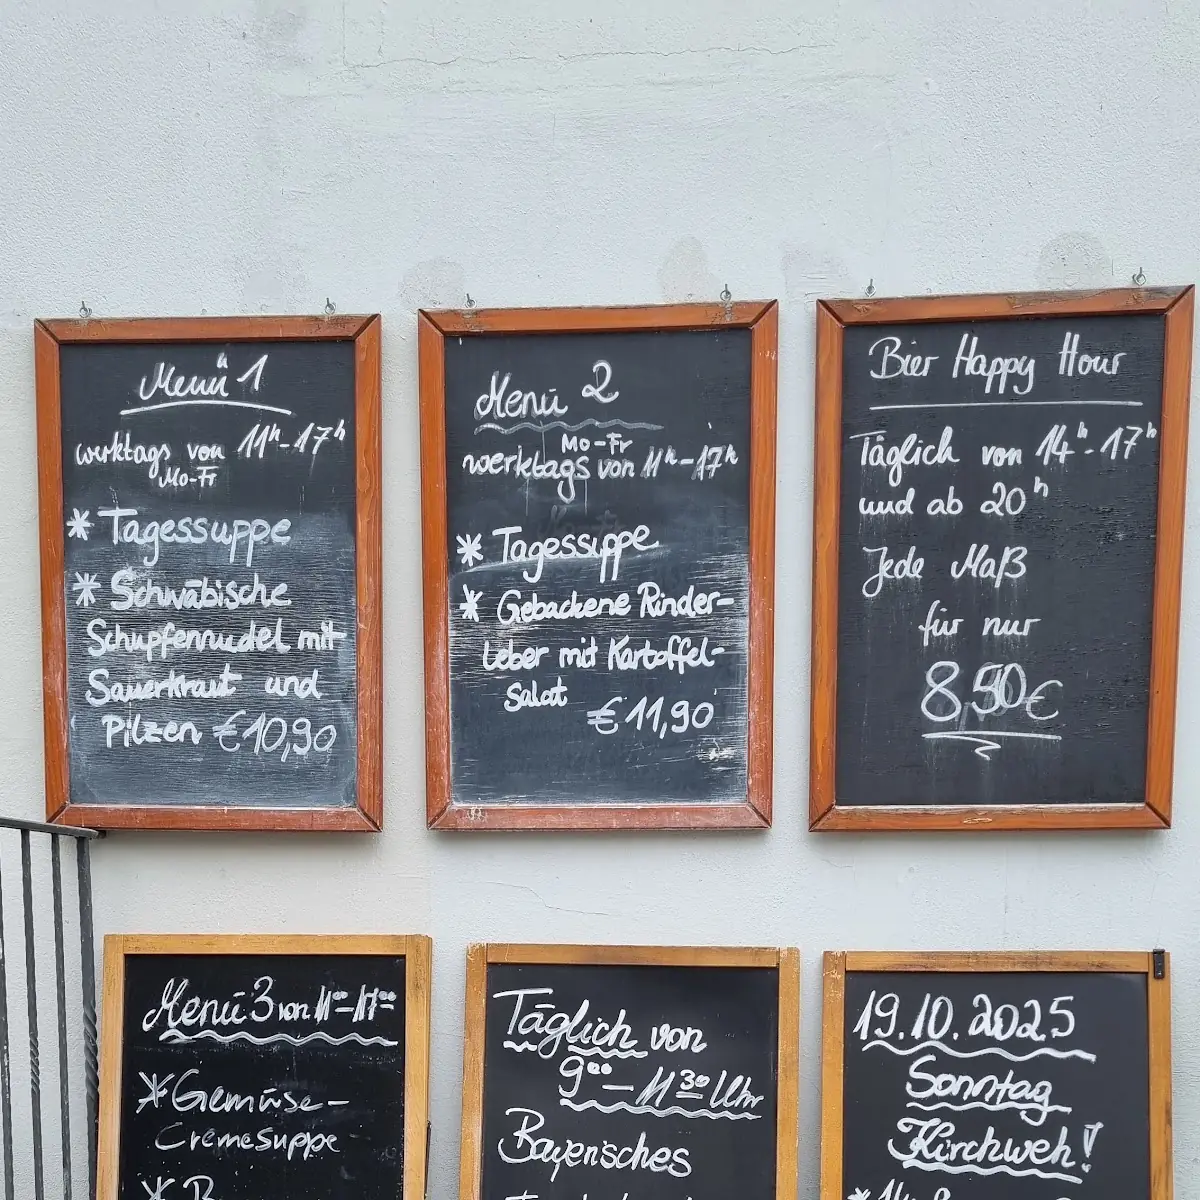 Menü 1
werktags von 11h-17h
Mo-Fr
* Tagessuppe
* Schwäbische
Schupfennudel mit
Sauerkraut und
Pilzen €10,90
Menü 2
Mo-Fr
werktags von 11h-17h
* Tagessuppe
* Gebackene Rinder-
leber mit Kartoffel-
salat
€11,90
Bier Happy Hour
Täglich von 14h-17h
und ab 20h
Jede Maß
für nur
8,50€
Menü 3 von 11⁰⁰-17⁰⁰
* Gemüse-
Cremesuppe
Täglich von
9⁰⁰-11³⁰ Uhr
Bayerisches
19.10.2025
Sonntag
Kirchweh!